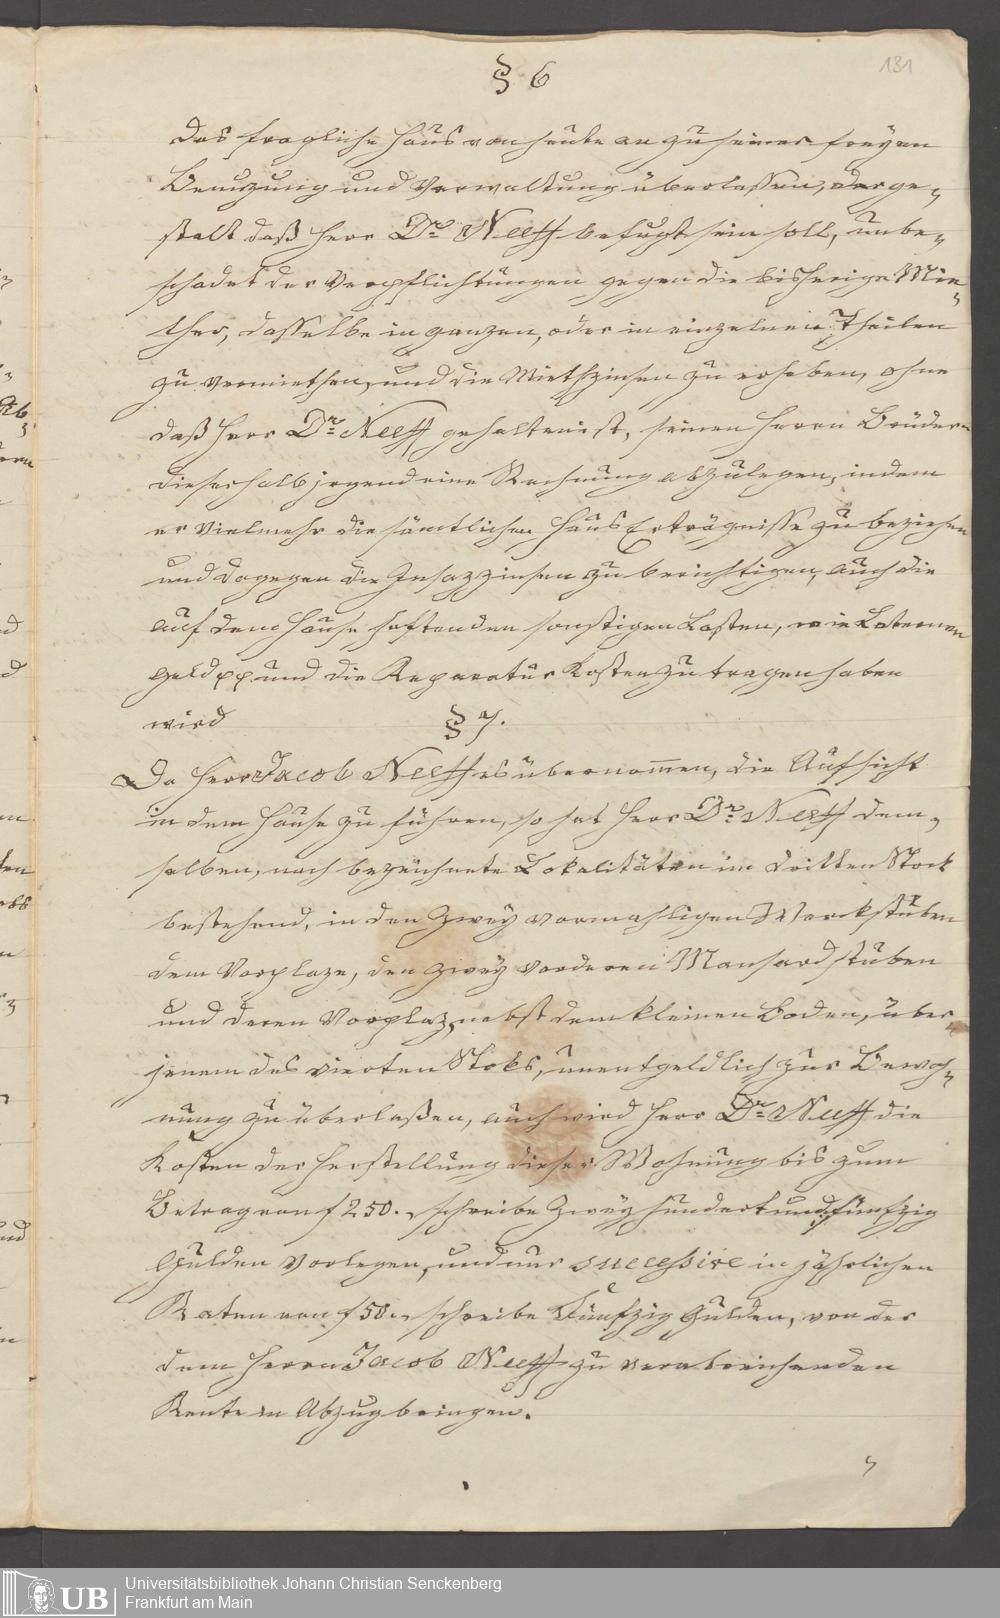 131
§ 6
das fragliche Haus von heute an zu seiner freyen
Benuzung und Verwaltung überlassen, derge-
stalt daß Herr Dr. Neeff befugt sein soll, unbe-
schadet der Verpflichtungen gegen die bisherige Mie-
ther, dasselbe in ganzen, oder in einzelnen Theilen
zu vermiethen, und die Miethzinsen zu erheben, ohne
daß Herr Dr. Neeff gehalten ist, seinen Herrn Brüdern
dieserhalb irgend eine Rechnung abzulegen, indem
er vielmehr die sämtlichen Haus Erträgnisse zu beziehen
und dagegen die Insazzinsen zu berichtigen, auch die
auf dem Hause haftenden sonstigen Lasten, wie Laternen
geld pp und die Reparatur Kosten zu tragen haben
wird § 7.
Da Herr Jacob Neeff es übernommen, die Aufsicht
in dem Hause zu führen, so hat Herr Dr. Neeff dem-
selben, nach bezeichnete Lokalitäten im dritten Stock
bestehend, in den zwey vormahligen Werckstuben
dem Vorplaze, den zwey vorderen Mansardstuben
und deren Vorplaz, nebst dem kleinen Boden, über
jenem des vierten Stoks, unentgeldlich zur Bewoh-
nung zu überlaßen, auch wird Herr Dr. Neeff die
Kosten der Herstellung dieser Wohnung bis zum
Betrag von f 250. schreibe Zwey hundert und fünfzig
Gulden vorlegen, und nur successive in jährlichen
Raten von f 50. schreibe Fünfzig Gulden, von der
dem Herrn Jacob Neeff zu verabreichenden
Rente in Abzug bringen.
UB
Universitätsbibliothek Johann Christian Senckenberg
Frankfurt am Main